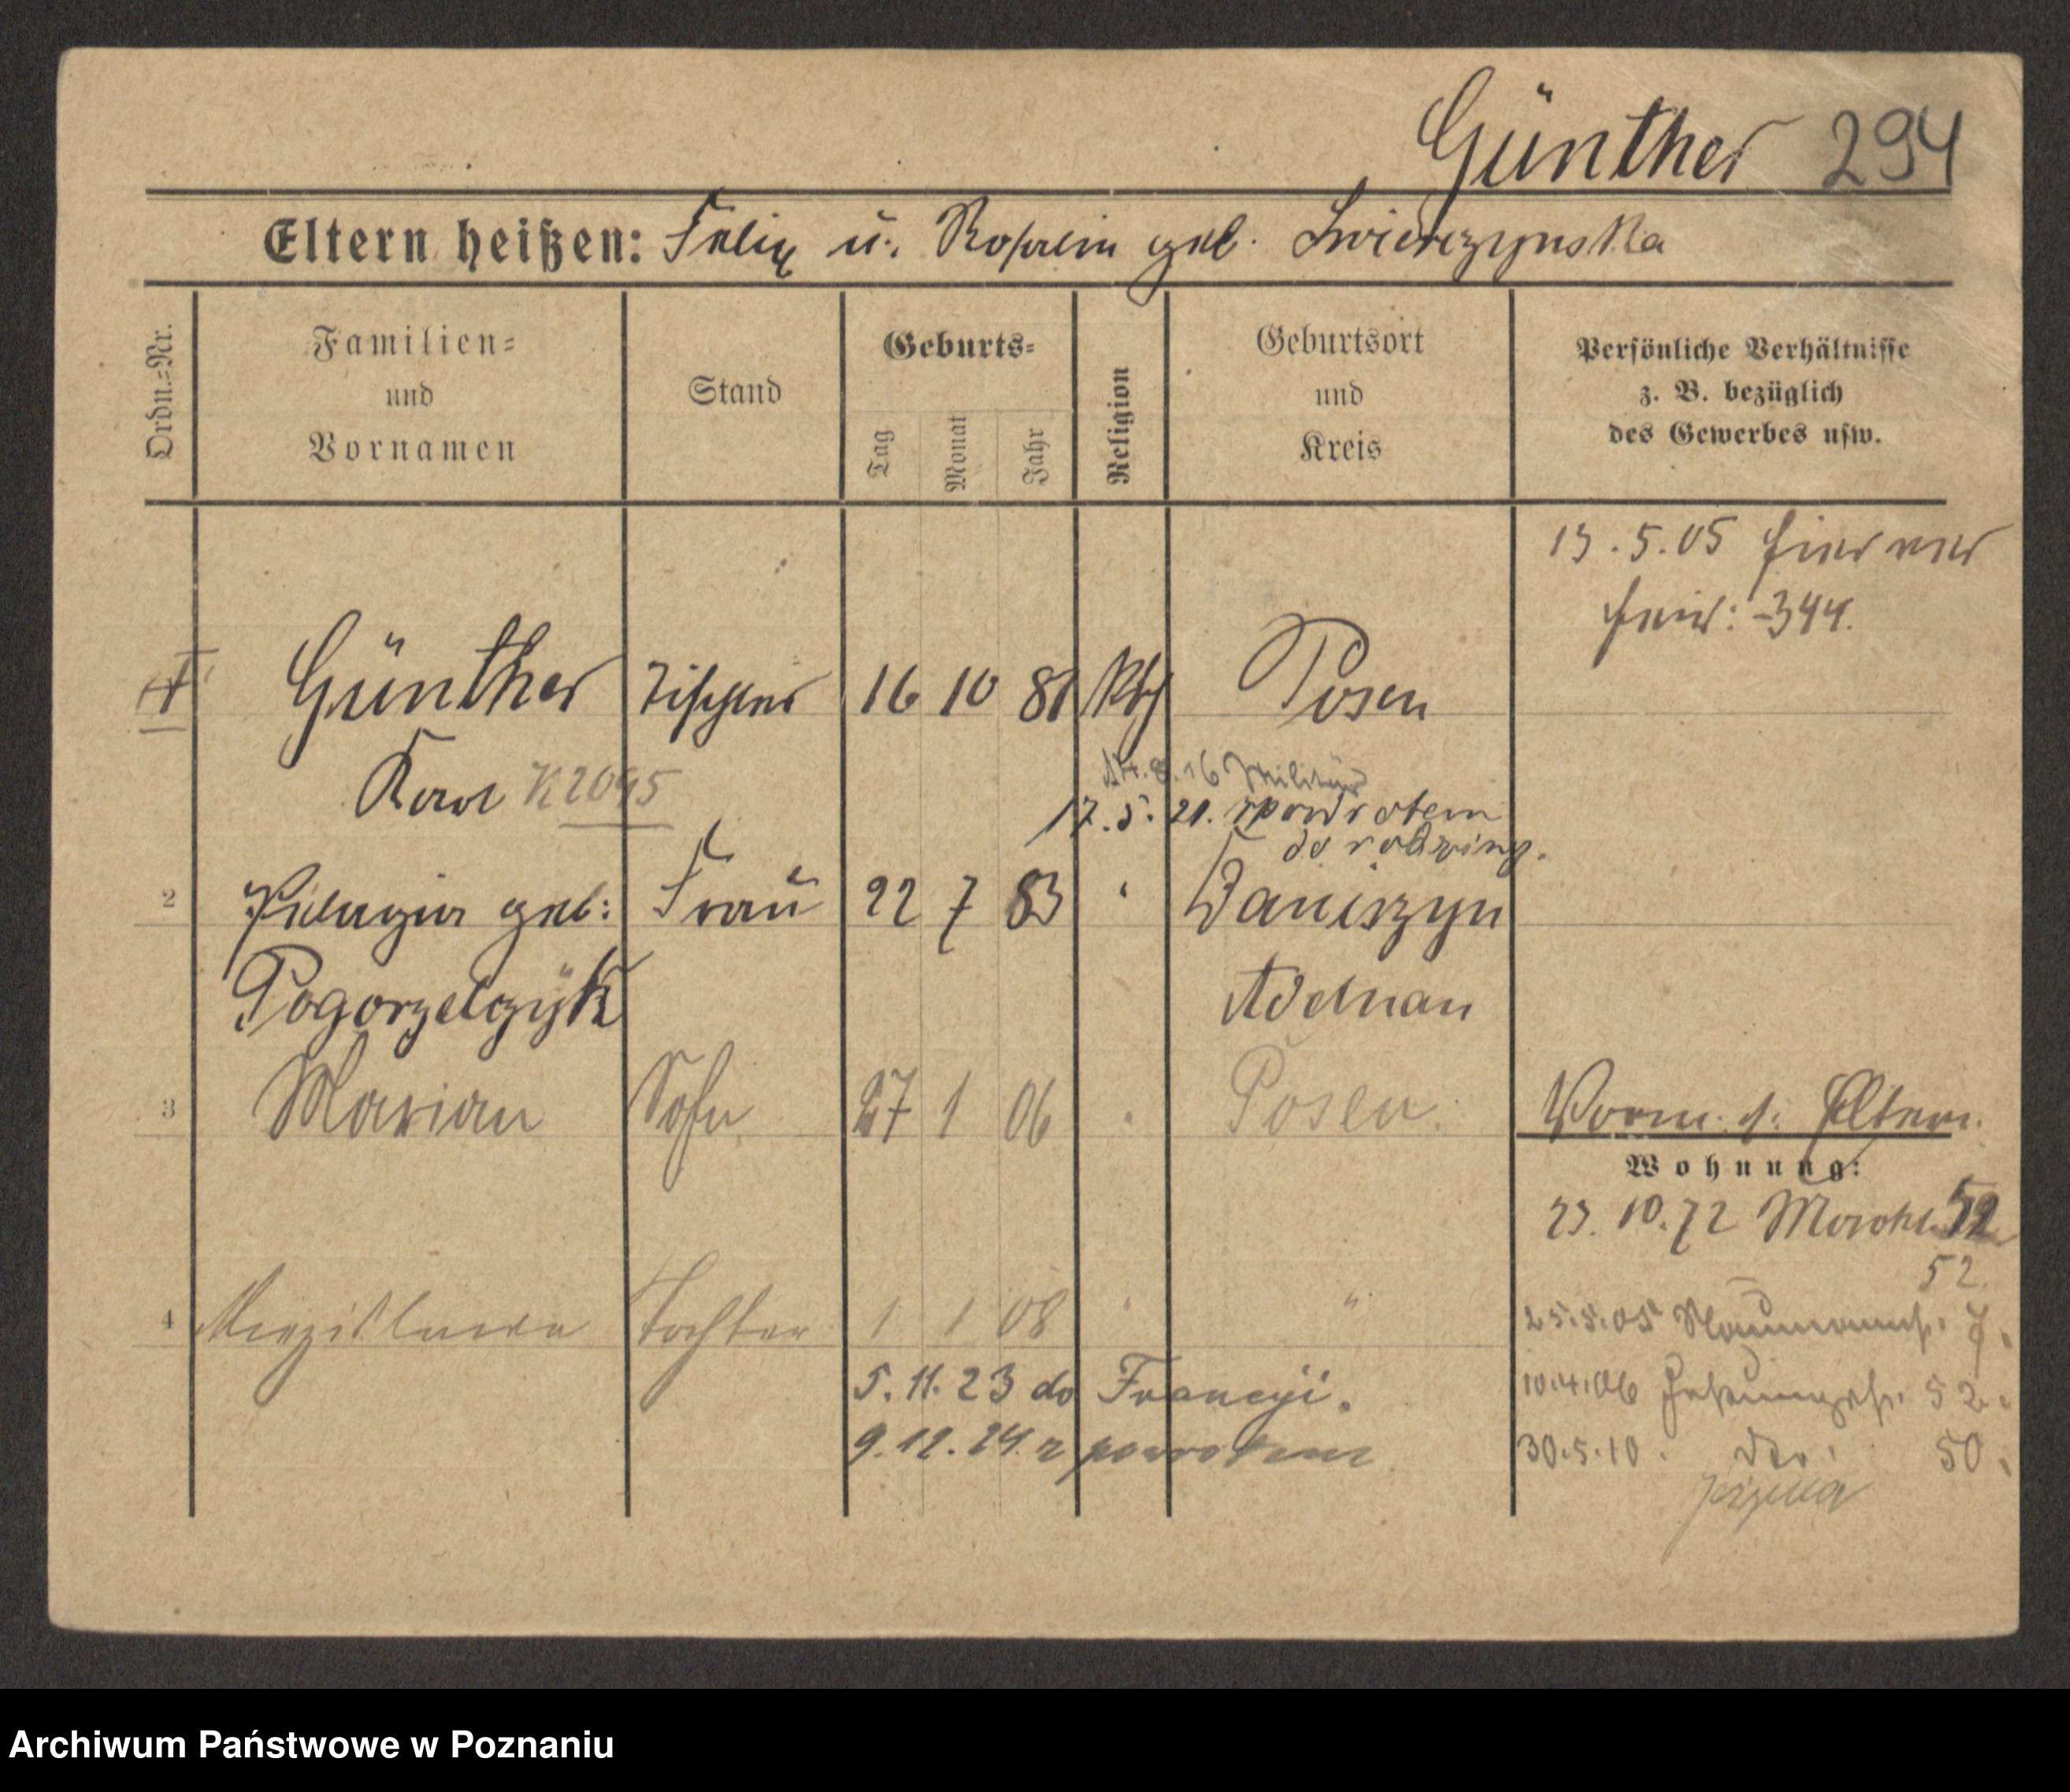 Günther 294
Eltern heißen: Felix u. Rosalia geb. Swierczynska
Ordn.=Nr.
Familien=
und
Vornamen
Stand
Geburts=
Tag
Monat
Jahr
Religion
Geburtsort
und
Kreis
Persönliche Verhältnisse
z. B. bezüglich
des Gewerbes usw.
13.5.05
344.
Günther Tischler 16 10 81 kth Posen
Karl K2095
14.8.16 Militär
17.5.21. z powrotem
do rodziny.
2 Pelagia geb: Frau 22 7 83 " Daniszyn
Pogorzelczyk Adelnau
3 Marian Sohn 27 1 06 " Posen. Vorm. d. Eltern.
Wohnung:
23.10.72 52
52.
4 Tochter 1 1 08 " "
25.5.05 Naumannst. 7.
5.11.23 do Francyi.
10.4.06 52.
9.12.24 z powrotem
30.5.10. 50.